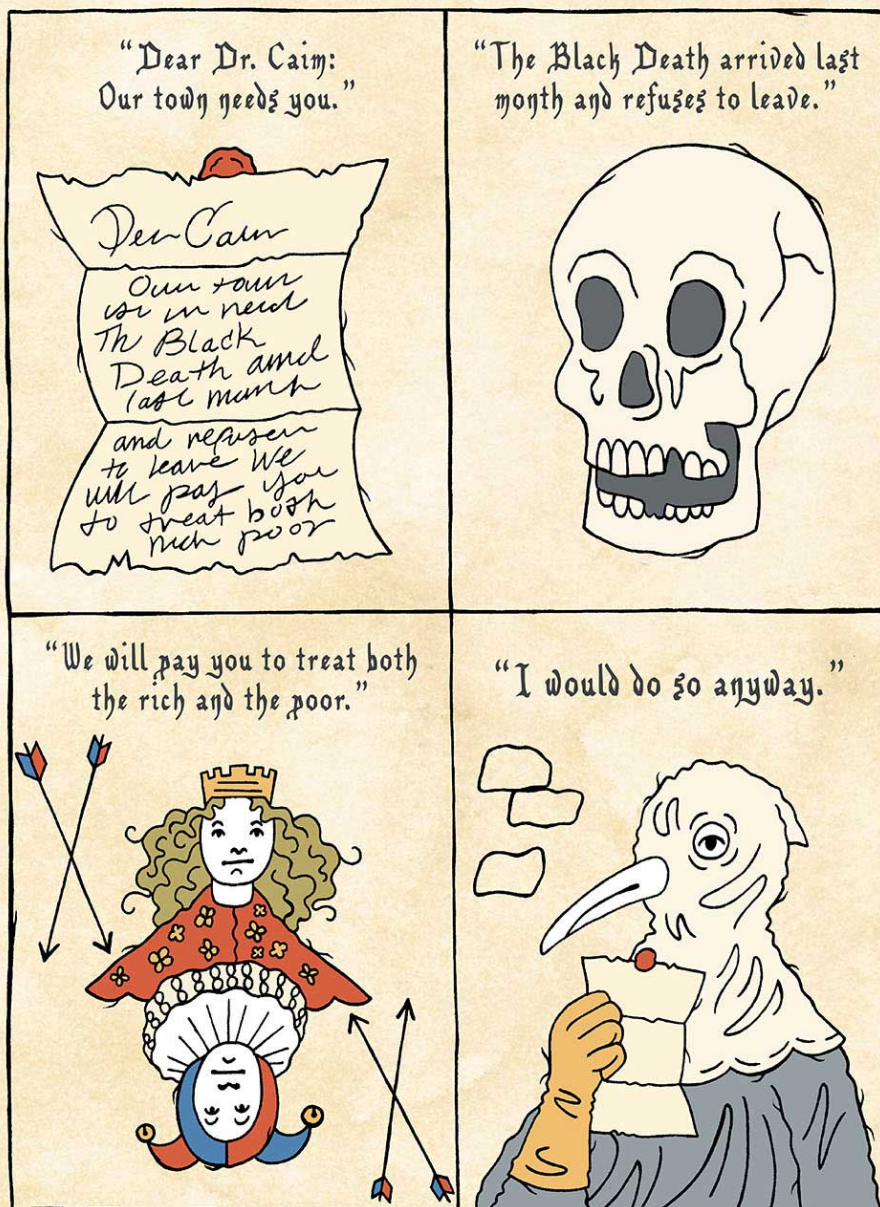 “Dear Dr. Caim:
Our town needs you.”
Dear Caim
Our town
is in need
Th Black
Death arrived
last month
and refuses
to leave We
will pay you
to treat both
rich poor
“The Black Death arrived last
month and refuses to leave.”
“We will pay you to treat both
the rich and the poor.”
“I would do so anyway.”